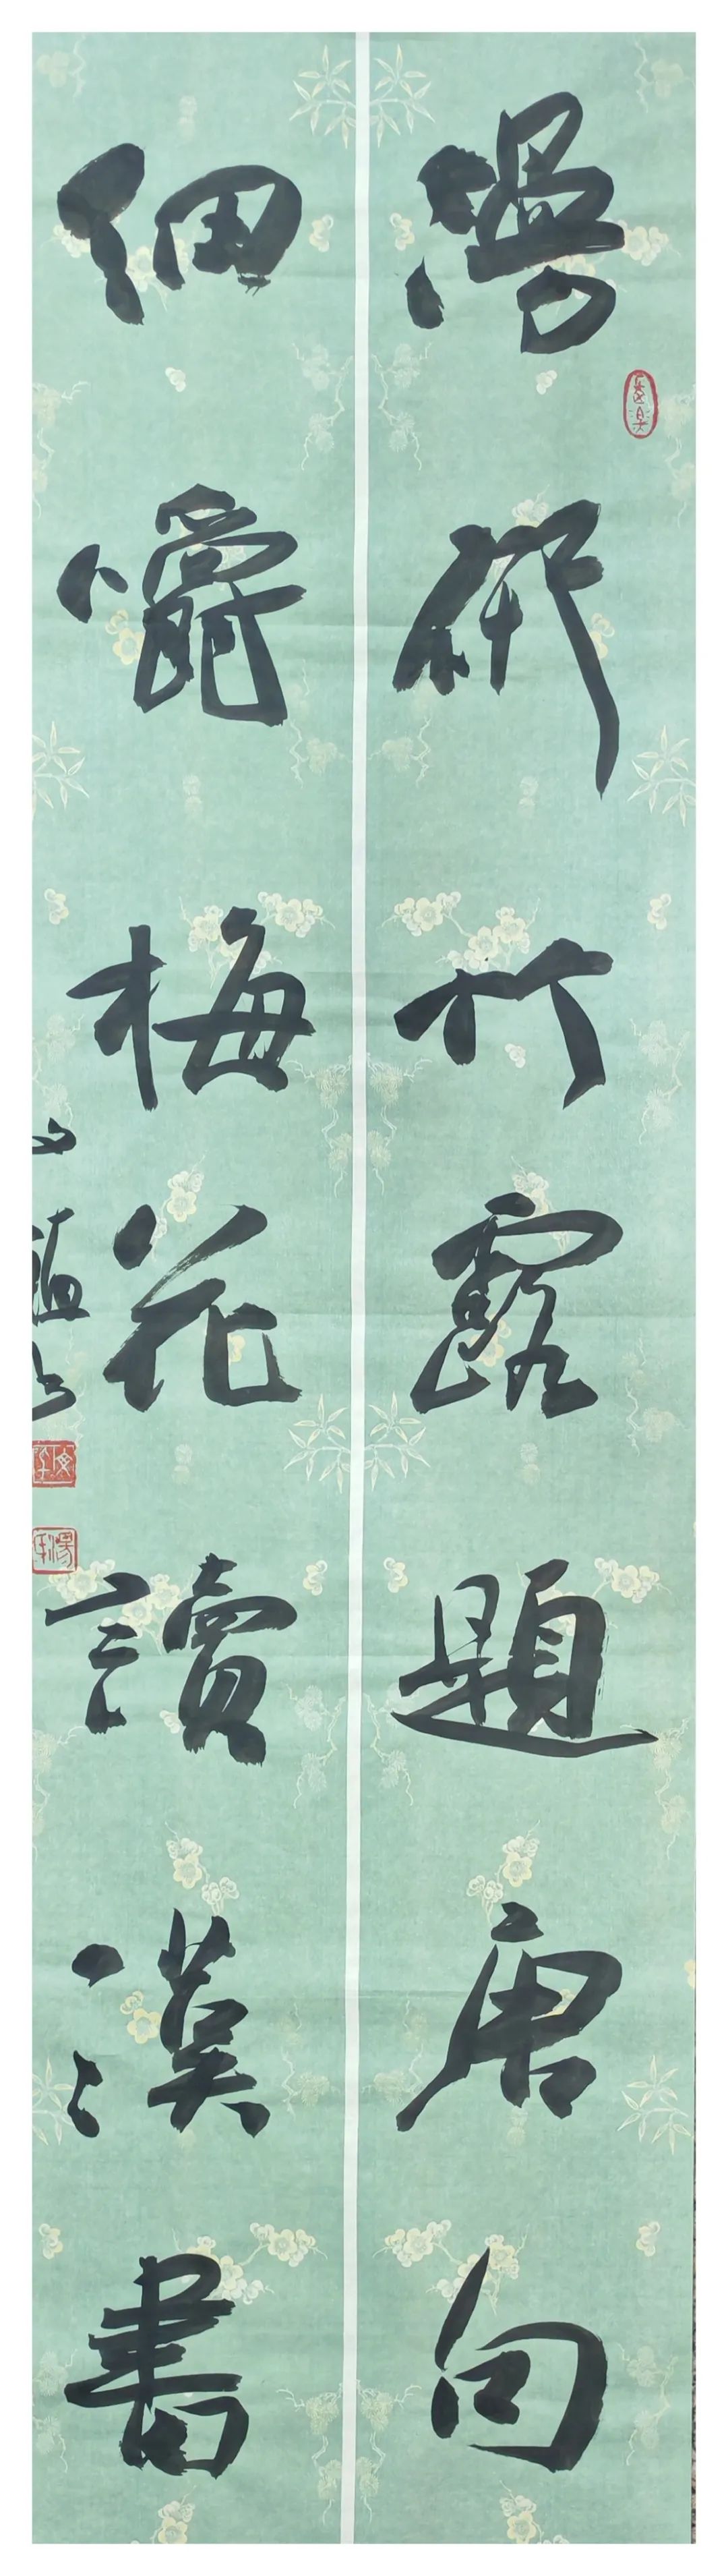 漫研竹露題唐句
細嚼梅花讀漢書